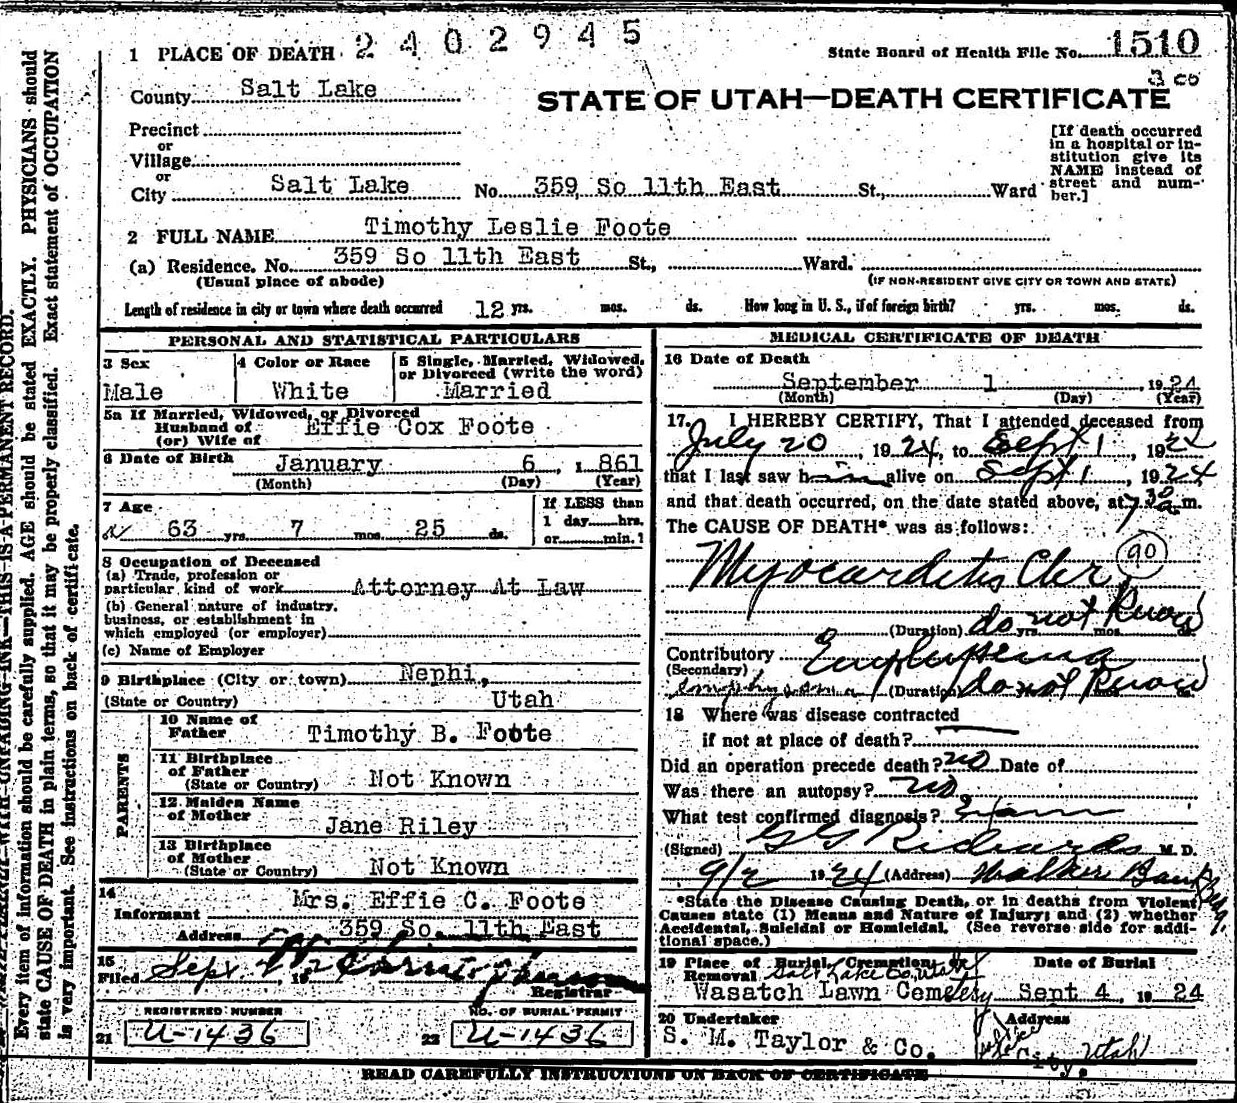 1 PLACE OF DEATH 2402945
State Board of Health File No. 1510
3 co
County Salt Lake
STATE OF UTAH—DEATH CERTIFICATE
Precinct
or
Village
or
City Salt Lake No. 359 So 11th East St., Ward
[If death occurred
in a hospital or in-
stitution give its
NAME instead of
street and num-
ber.]
2 FULL NAME Timothy Leslie Foote
(a) Residence. No. 359 So 11th East St., Ward.
(Usual place of abode) (IF NON-RESIDENT GIVE CITY OR TOWN AND STATE)
Length of residence in city or town where death occurred 12 yrs. mos. ds. How long in U. S., if of foreign birth? yrs. mos. ds.
PERSONAL AND STATISTICAL PARTICULARS
3 Sex
Male
4 Color or Race
White
5 Single, Married, Widowed,
or Divorced (write the word)
Married
5a If Married, Widowed, or Divorced
Husband of
(or) Wife of
Effie Cox Foote
6 Date of Birth January 6, 1861
(Month) (Day) (Year)
7 Age
63 yrs. 7 mos. 25 ds.
If LESS than
1 day hrs.
or min.?
8 Occupation of Deceased
(a) Trade, profession or
particular kind of work Attorney At Law
(b) General nature of industry,
business, or establishment in
which employed (or employer)
(c) Name of Employer
9 Birthplace (City or town) Nephi,
(State or Country) Utah
PARENTS
10 Name of
Father Timothy B. Foote
11 Birthplace
of Father
(State or Country) Not Known
12 Maiden Name
of Mother Jane Riley
13 Birthplace
of Mother
(State or Country) Not Known
14
Informant Mrs. Effie C. Foote
Address 359 So. 11th East
15
Filed Sept. 2 19
Registrar
REGISTERED NUMBER
21 U-1436
NO. OF BURIAL PERMIT
22 U-1436
MEDICAL CERTIFICATE OF DEATH
16 Date of Death
September 1, 1924
(Month) (Day) (Year)
17. I HEREBY CERTIFY, That I attended deceased from
July 20, 1924, to Sept 1, 1924
that I last saw him alive on Sept 1, 1924
and that death occurred, on the date stated above, at 7 30 a.m.
The CAUSE OF DEATH* was as follows:
Myocarditis Chr. 90
(Duration) do not Know yrs. mos. ds.
Contributory Emphysema
(Secondary)
emphysema (Duration) do not Know
18 Where was disease contracted
if not at place of death?
Did an operation precede death? no Date of
Was there an autopsy? no
What test confirmed diagnosis? Exam
(Signed) G G Richards M. D.
9/2 1924 (Address) Walker Bank Bldg.
*State the Disease Causing Death, or in deaths from Violent
Causes state (1) Means and Nature of Injury; and (2) whether
Accidental, Suicidal or Homicidal. (See reverse side for addi-
tional space.)
19 Place of Burial, Cremation,
Removal Salt Lake Co. Utah
Date of Burial
Wasatch Lawn Cemetery Sept 4, 1924
20 Undertaker Address
S. M. Taylor & Co. City, Utah
READ CAREFULLY INSTRUCTIONS ON BACK OF CERTIFICATE
Every item of information should be carefully supplied. AGE should be stated EXACTLY. PHYSICIANS should
state CAUSE OF DEATH in plain terms, so that it may be properly classified. Exact statement of OCCUPATION
is very important. See instructions on back of certificate.
WITH UNFADING INK—THIS IS A PERMANENT RECORD.